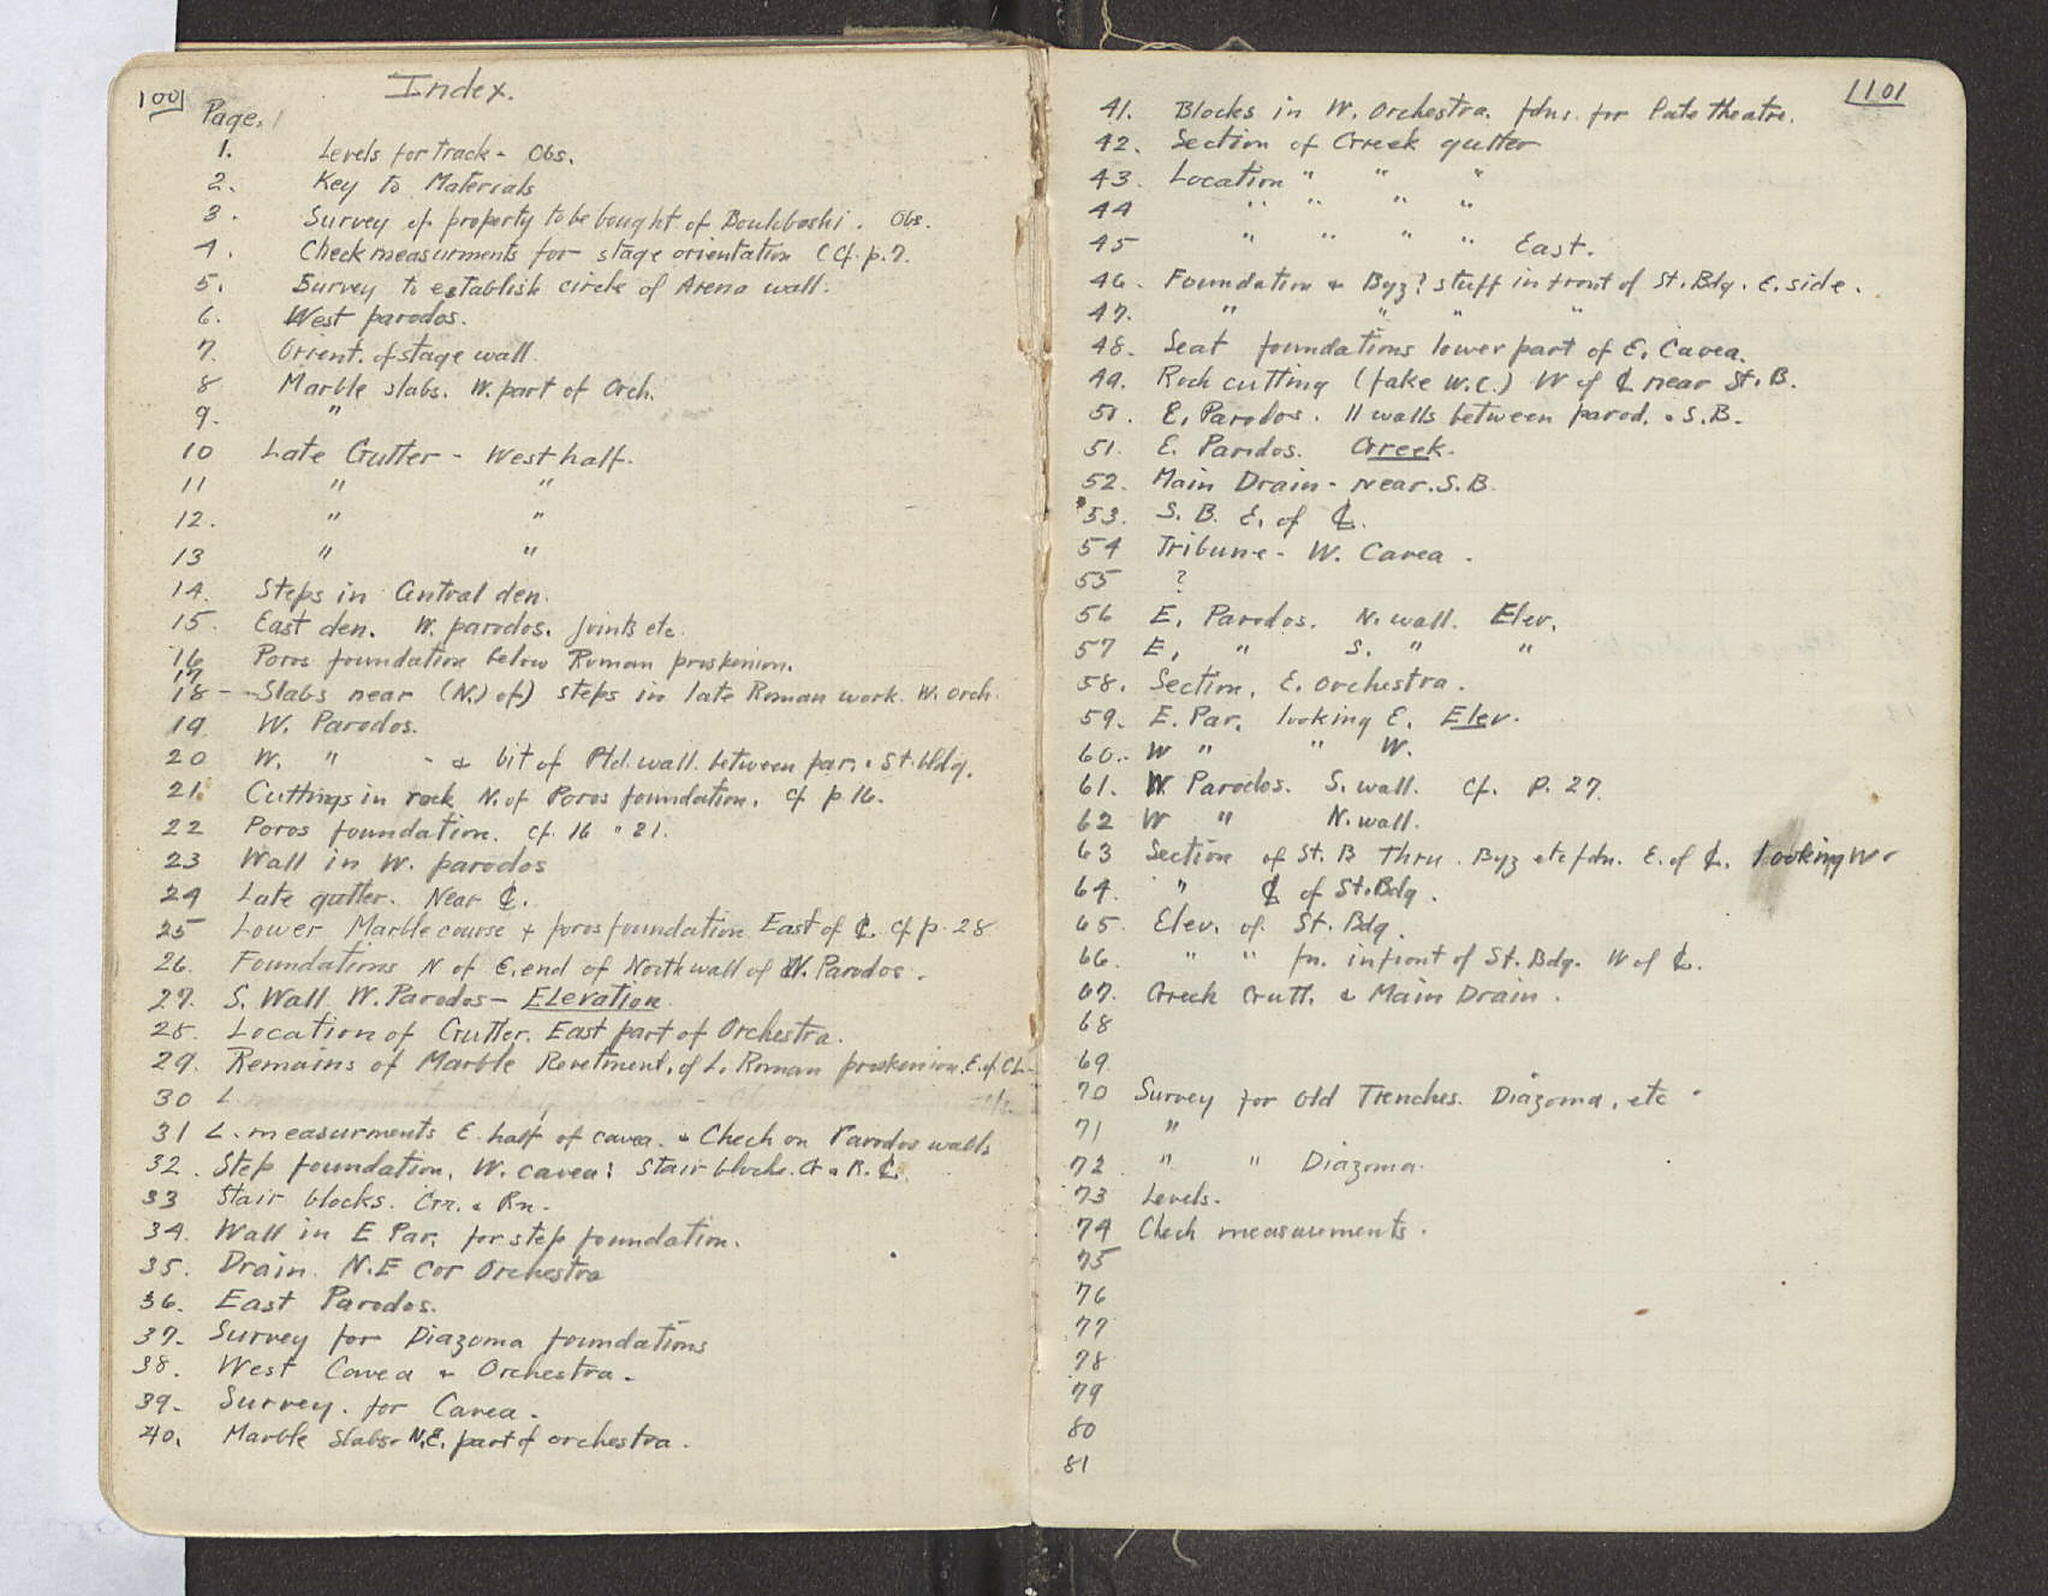 1001
Index.
Page.
1. Levels for track - Obs.
2. Key to Materials
3. Survey of property to be bought of Boukboshi. Obs.
4. Check measurments for stage orientation (cf. p. 7.
5. Survey to establish circle of Arena wall.
6. West parodos.
7. Orient. of stage wall.
8 Marble slabs. W. part of Orch.
9. "
10 Late Gutter - West half.
11 " "
12. " "
13 " "
14. Steps in Central den.
15. East den. W. parodos. joints etc.
16 Poros foundation below Roman proskenion.
17
18 - Slabs near (N.) of) steps in late Roman work. W. Orch.
19. W. Parodos.
20 W. " - & bit of Ptd. wall between par. & St. bldg.
21. Cuttings in rock N. of Poros foundation. cf p 16.
22 Poros foundation. cf. 16 & 21.
23 Wall in W. parodos
24 Late gutter. Near ℄.
25 Lower Marble course & poros foundation East of ℄. cf p. 28
26. Foundations N of E. end of North wall of W. Parodos.
27. S. Wall W. Parodos - Elevation.
28. Location of Gutter. East part of Orchestra.
29. Remains of Marble Revetment. of L. Roman proskenion. E. of CL.
30 L.
31 L. measurments E. half of cavea. & Check on Parodos walls
32. Step foundation. W. cavea: Stair blocks. G & R. ℄.
33 Stair blocks. Gr. & Rn.
34. Wall in E Par. for step foundation.
35. Drain. N.E Cor Orchestra
36. East Parodos.
37. Survey for Diazoma foundations
38. West Cavea & Orchestra.
39. Survey. for Cavea.
40. Marble slabs. N.E. part of orchestra.
1101
41. Blocks in W. Orchestra. fdns. for late theatre.
42. Section of Greek gutter
43. Location " " "
44 " " " "
45 " " " " East.
46. Foundation & Byz? stuff in front of St. Bdg. E. side.
47. " " " "
48. Seat foundations lower part of E. Cavea.
49. Rock cutting (fake W.C.) W of ℄ near St. B.
51. E. Parodos. 11 walls between parod. & S.B.
51. E. Parodos. Greek.
52. Main Drain - near. S.B.
53. S. B. E. of ℄.
54 Tribune - W. Cavea.
55 ?
56 E. Parodos. N. wall. Elev.
57 E. " S. " "
58. Section. E. Orchestra.
59. E. Par. looking E. Elev.
60. - W " " W.
61. W Parodos. S. wall. cf. p. 27.
62 W " N. wall.
63 Section of St. B thru. Byz etc fdn. E. of ℄. looking W.
64. " ℄ of St. Bdg.
65. Elev. of St. Bdg.
66. " " fn. in front of St. Bdg. W of ℄.
67. Greek Gutt. & Main Drain.
68
69.
70 Survey for Old Trenches. Diazoma, etc.
71 "
72. " " Diazoma.
73 Levels.
74 Check measurements.
75
76
77
78
79
80
81